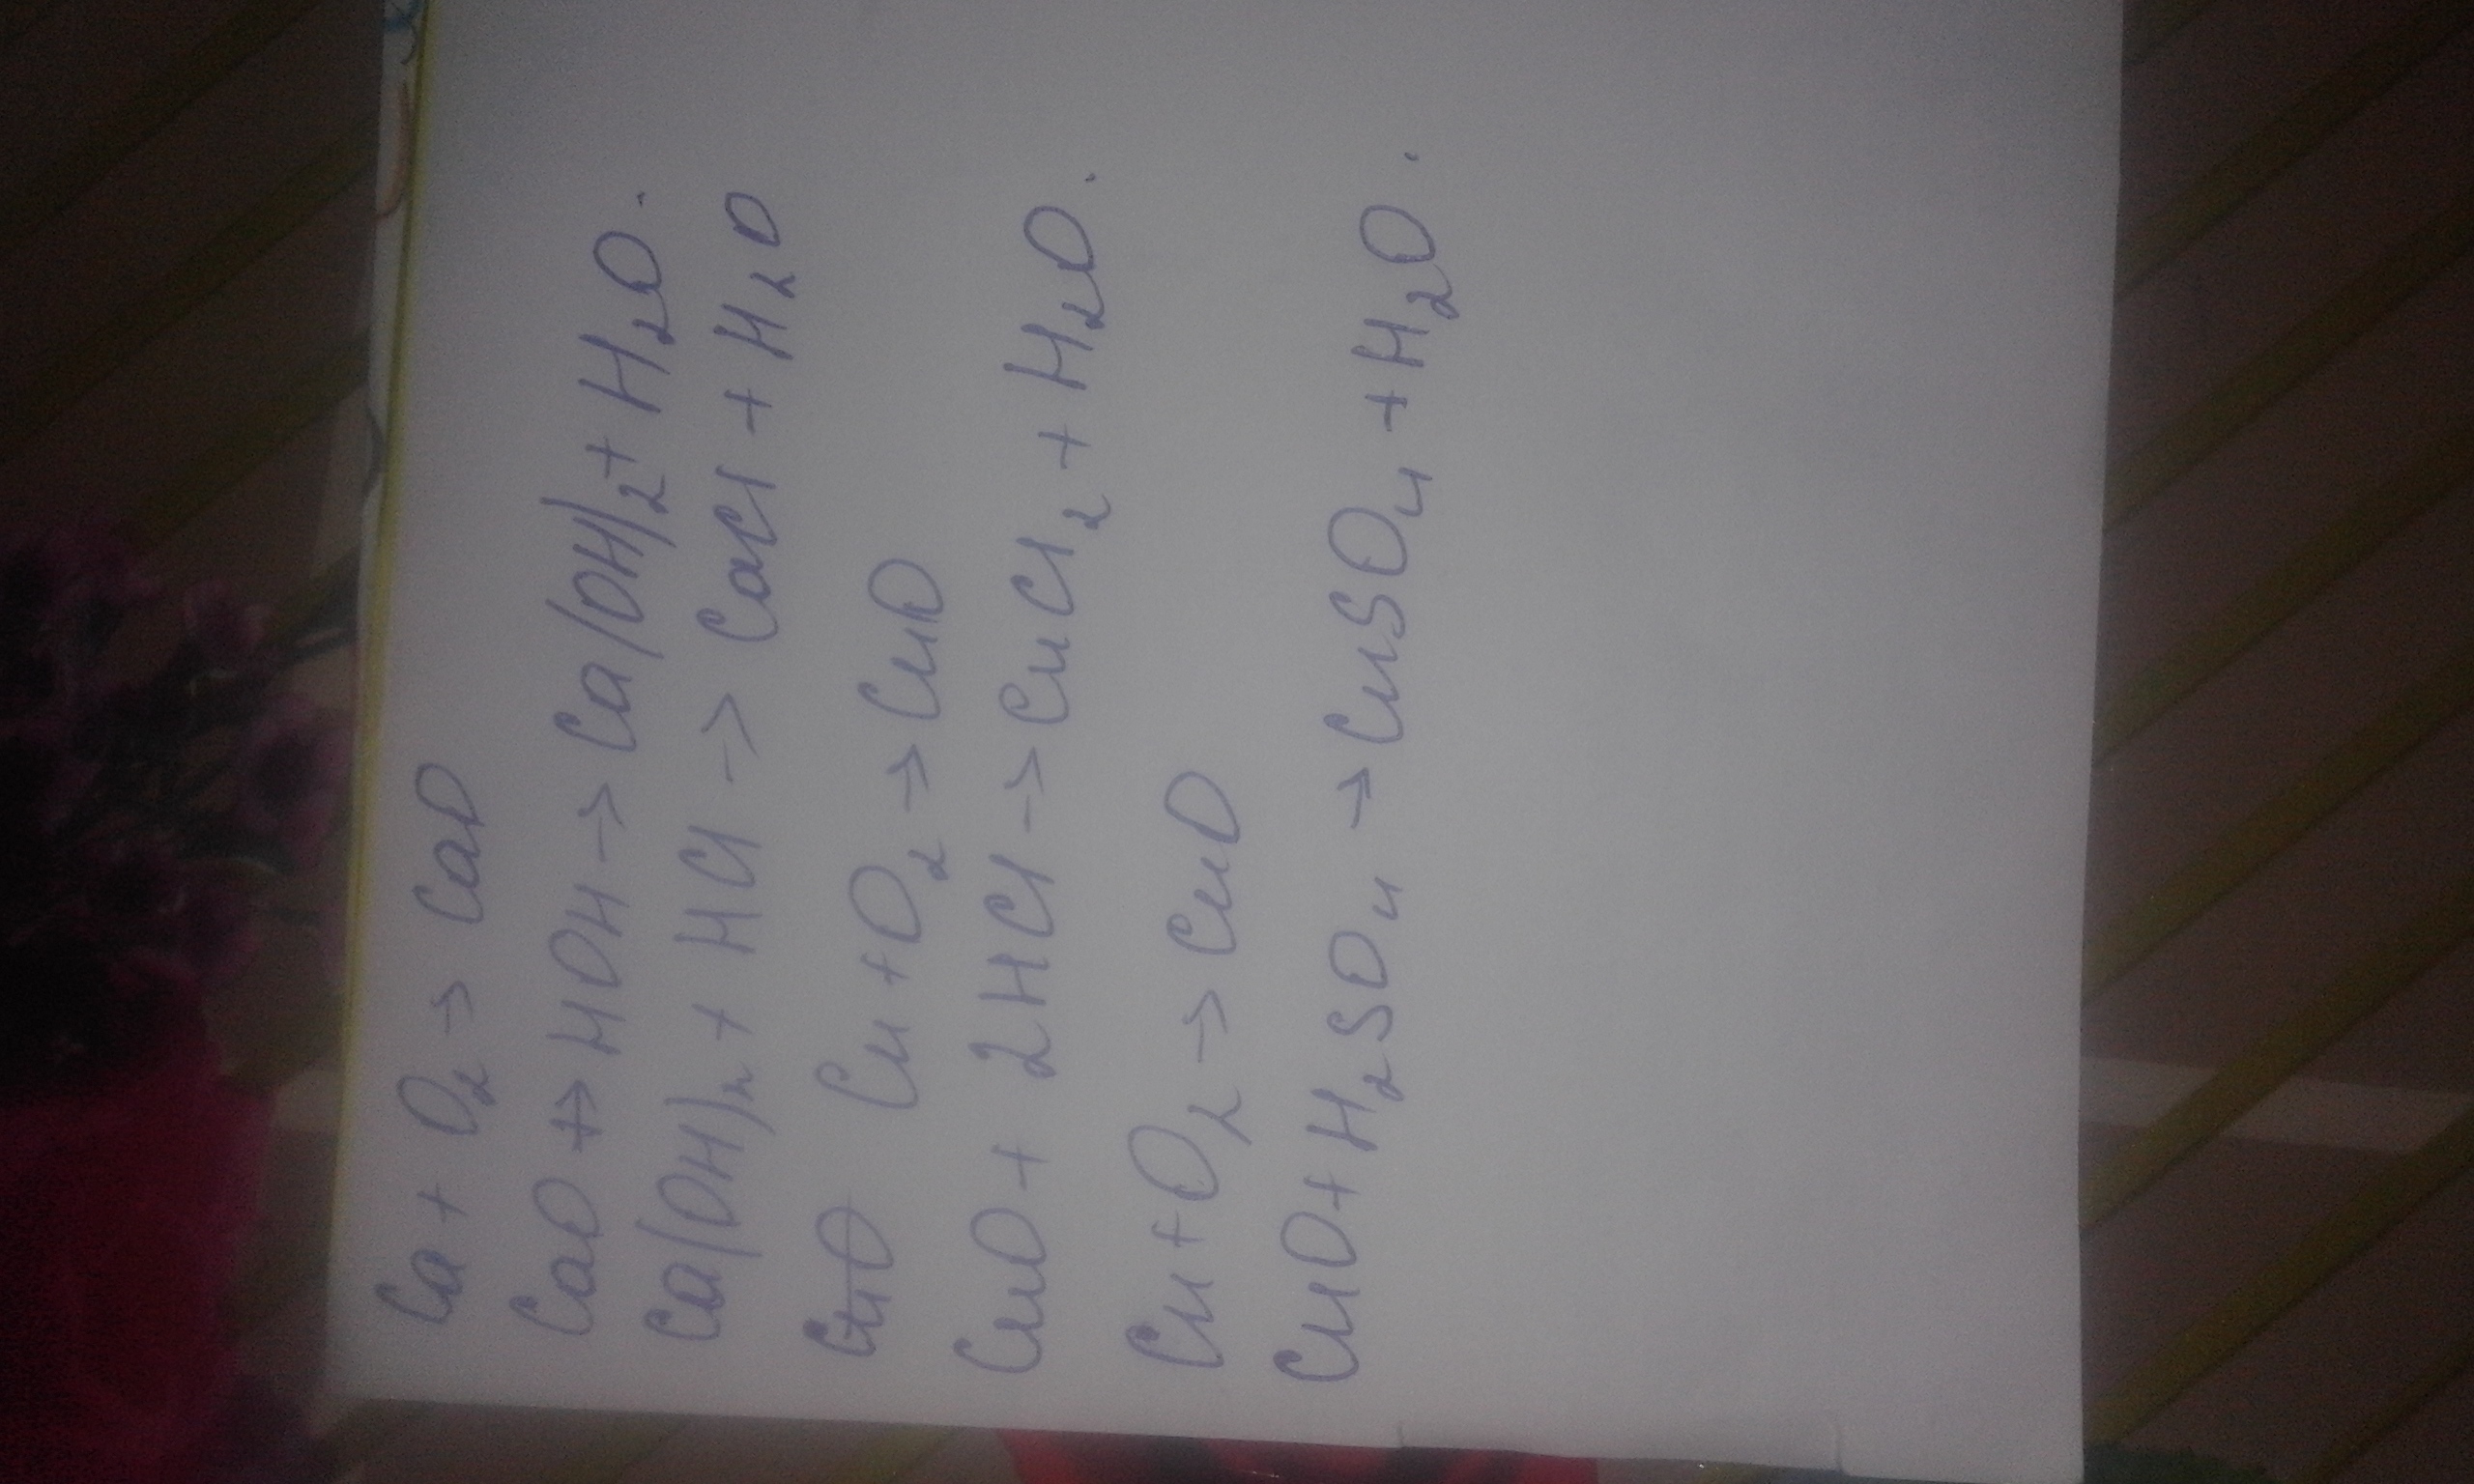 Ca + O₂ → CaO
CaO +→ HOH → Ca(OH)₂ + H₂O.
Ca(OH)₂ + HCl → CaCl + H₂O
CuO Cu + O₂ → CuO
CuO + 2HCl → CuCl₂ + H₂O.
Cu + O₂ → CuO
CuO + H₂SO₄ → CuSO₄ + H₂O.